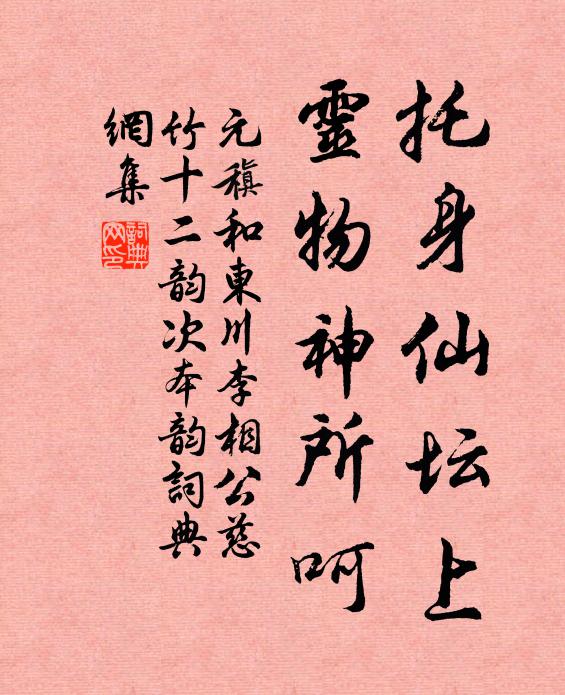 托身仙坛上
靈物神所呵
元稹和東川李相公慈
竹十二韵次本韵詞典
網集
詞典
网印